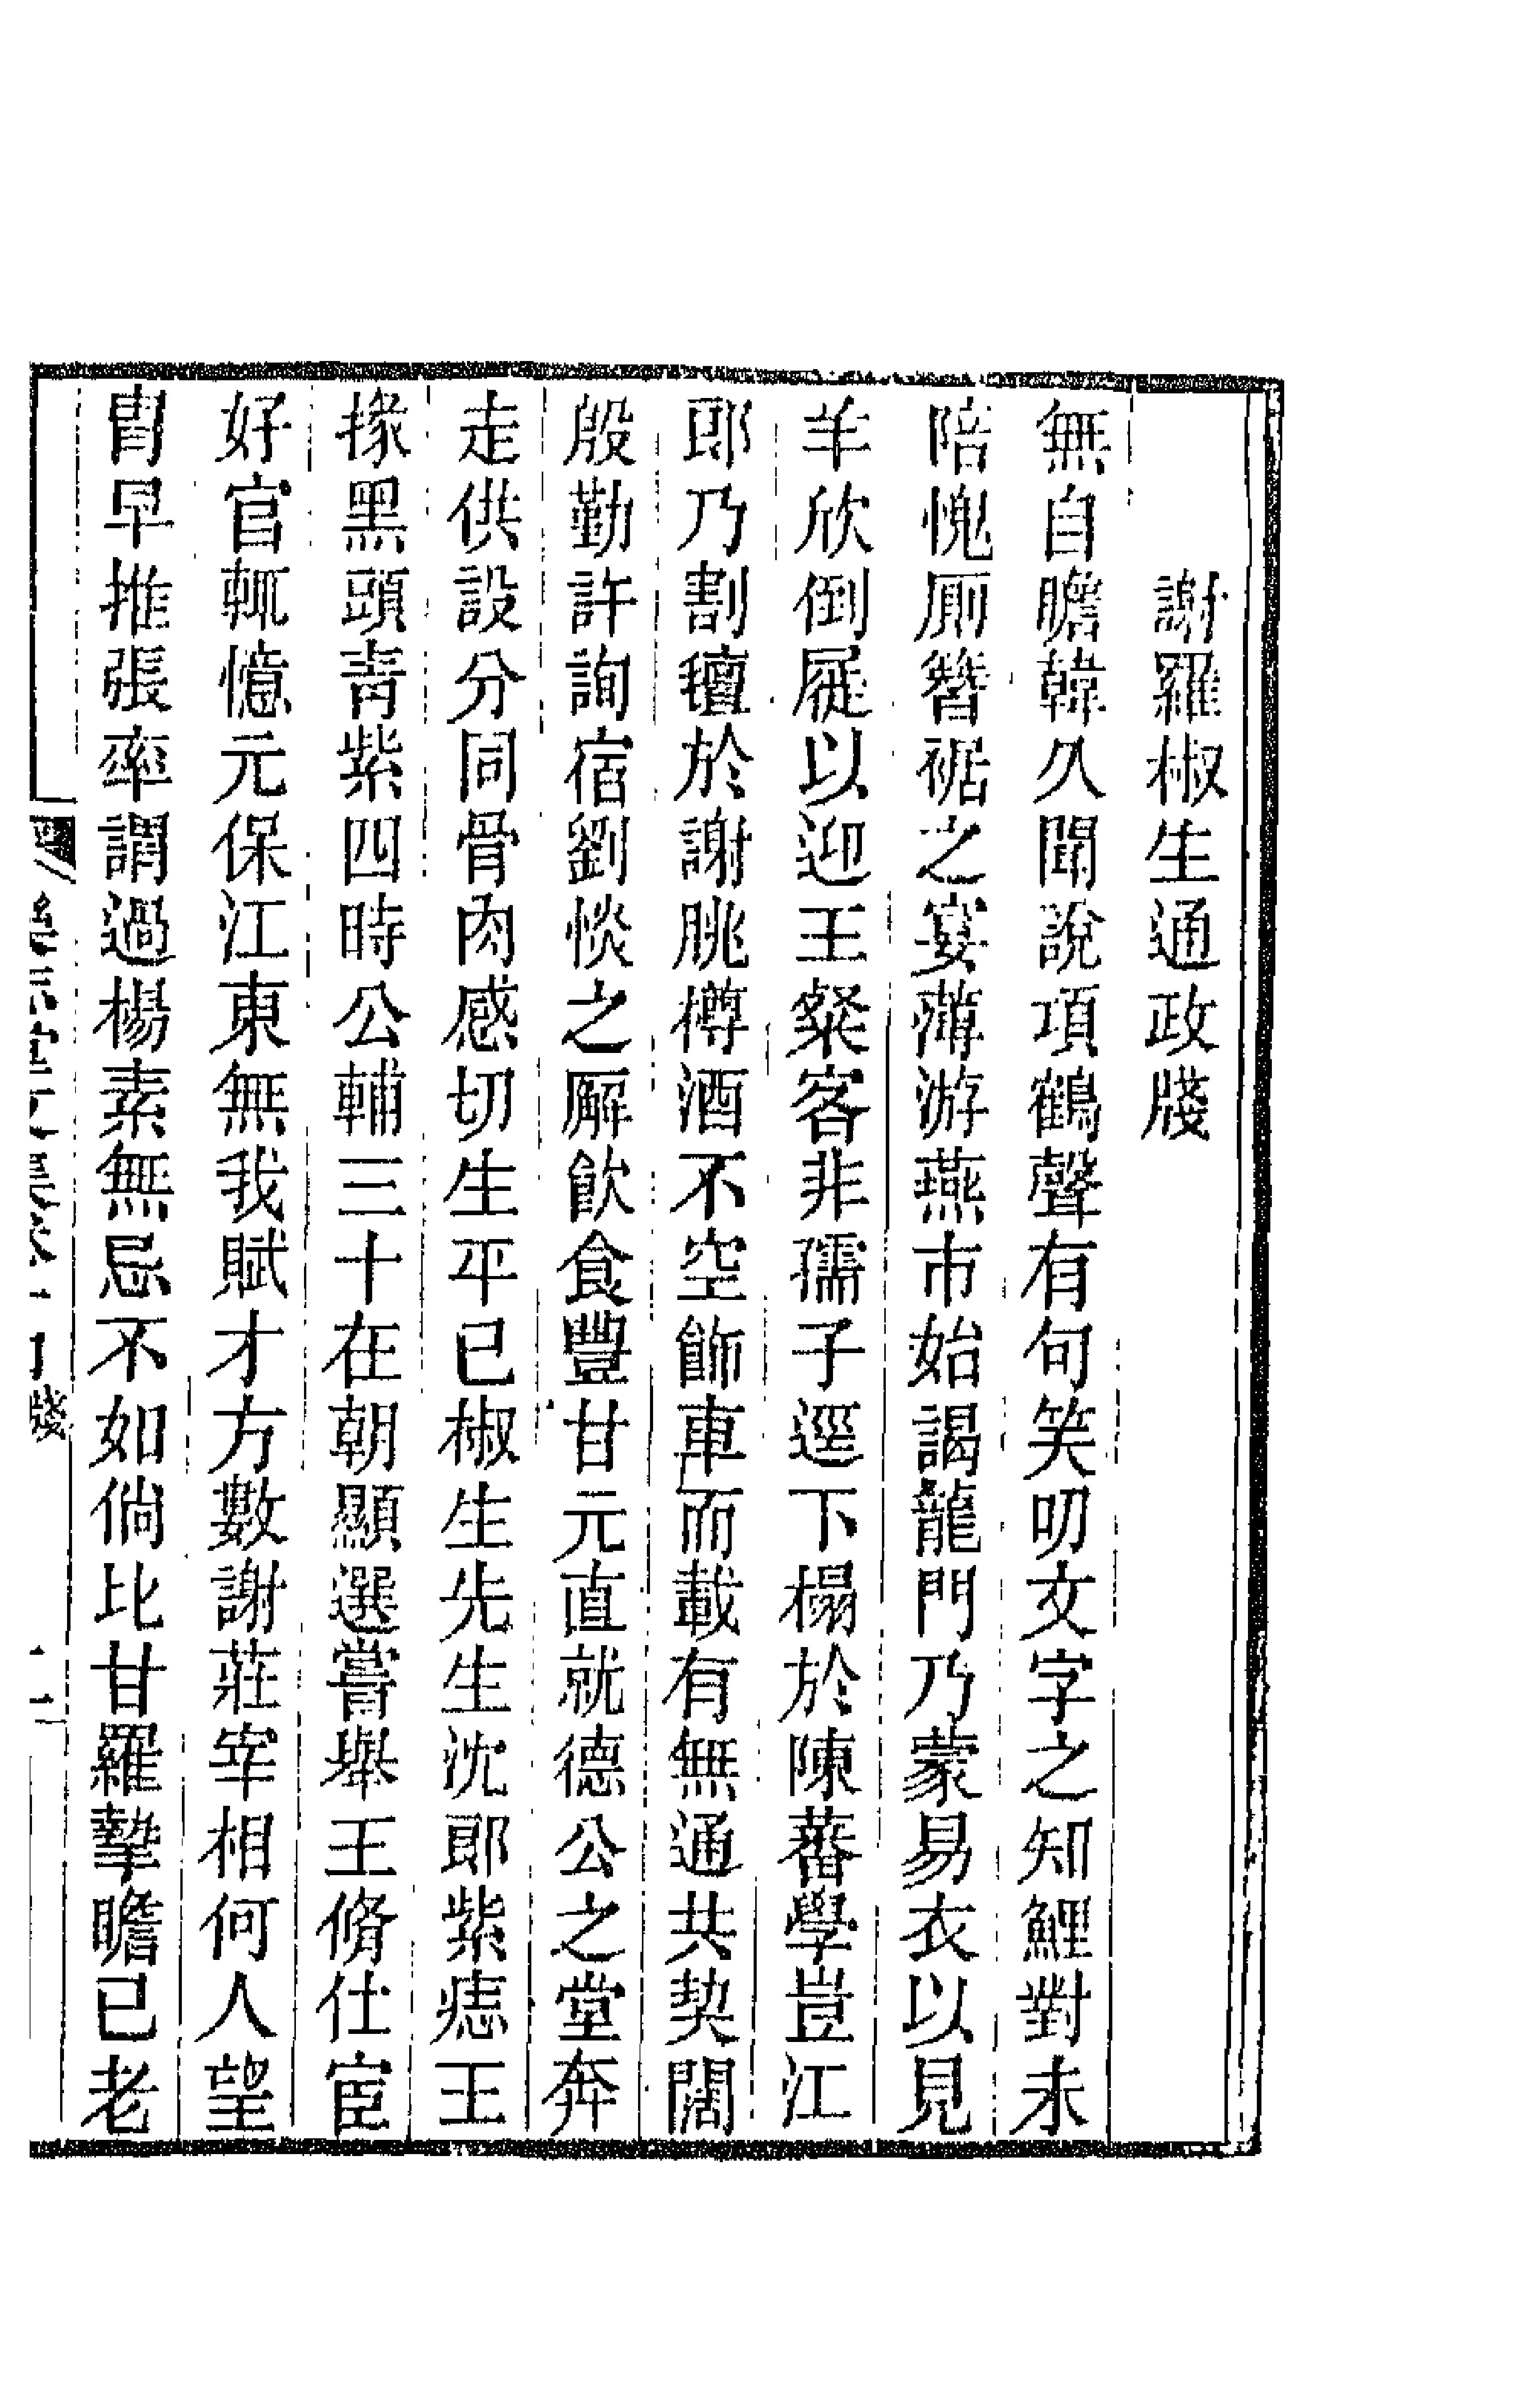 謝羅椒生通政牋
無自瞻韓久聞說項鶴聲有句笑叨文字之知鯉對未
陪愧厠簪裾之宴薄游燕市始謁龍門乃蒙易衣以見
羊欣倒屣以迎王粲客非孺子逕下榻於陳蕃學豈江
郎乃割氊於謝朓樽酒不空飾車而載有無通共契闊
殷勤許詢宿劉惔之廨飲食豐甘元直就德公之堂奔
走供設分同骨肉感切生平已椒生先生沈郎紫痣王
掾黑頭靑紫四時公輔三十在朝顯選嘗舉王脩仕宦
好官輒憶元保江東無我賦才方數謝莊宰相何人望
胄早推張率謂過楊素無忌不如倘比甘羅摯瞻已老
牋